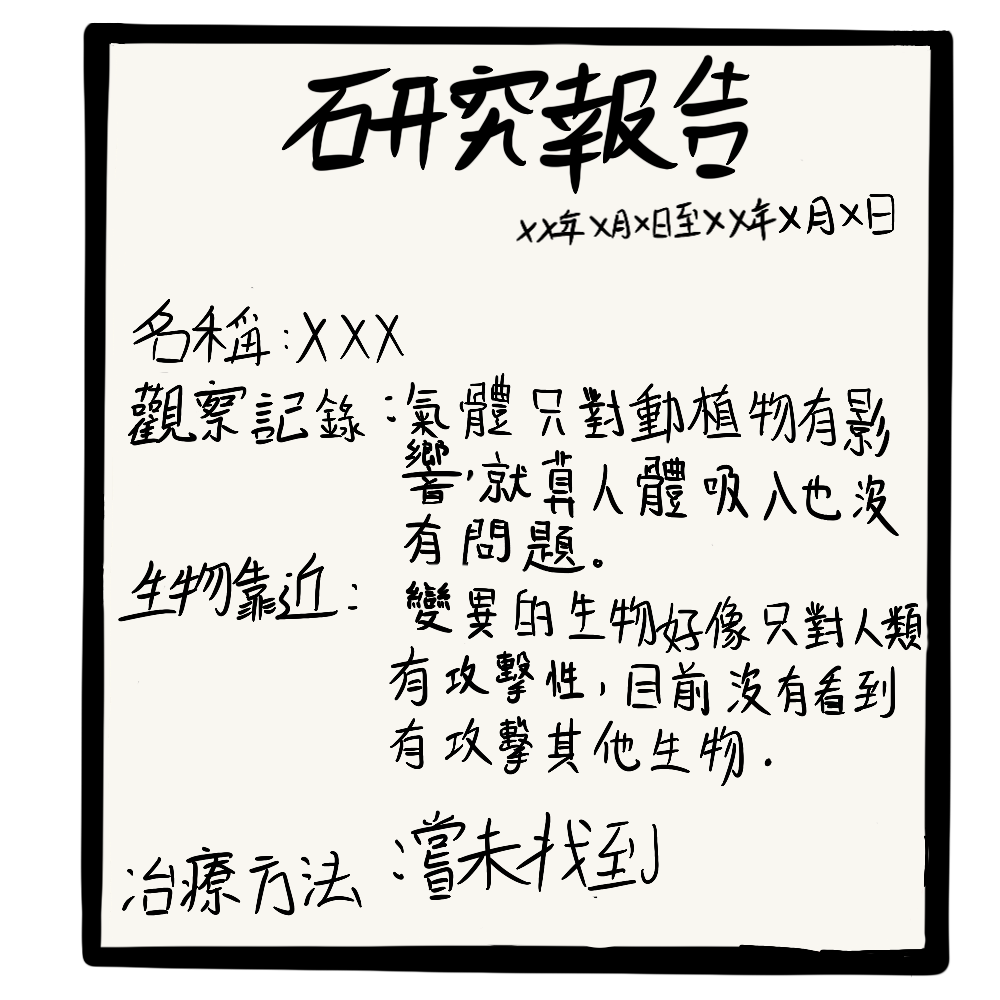 研究報告
XX年X月X日至XX年X月X日
名稱:XXX
觀察記錄:氣體只對動植物有影
響,就算人體吸入也沒
有問題。
生物靠近:變異的生物好像只對人類
有攻擊性,目前沒有看到
有攻擊其他生物.
治療方法:嘗未找到